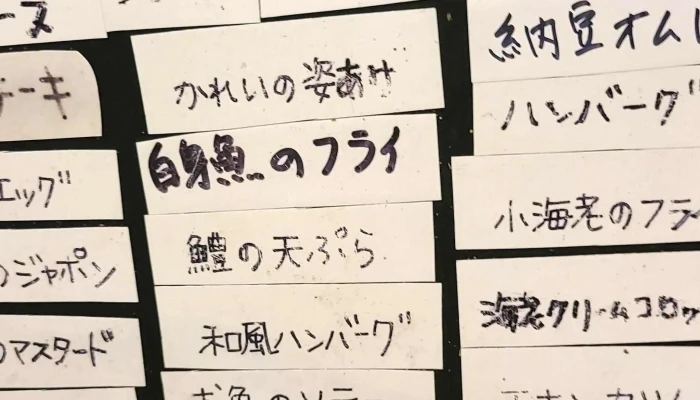 ース
ーキ
エッグ
のジャポン
のマスタード
かれいの姿あげ
白身魚のフライ
鱧の天ぷら
和風ハンバーグ
納豆オム
ハンバーグ
小海老のフラ
海老クリームコロッ